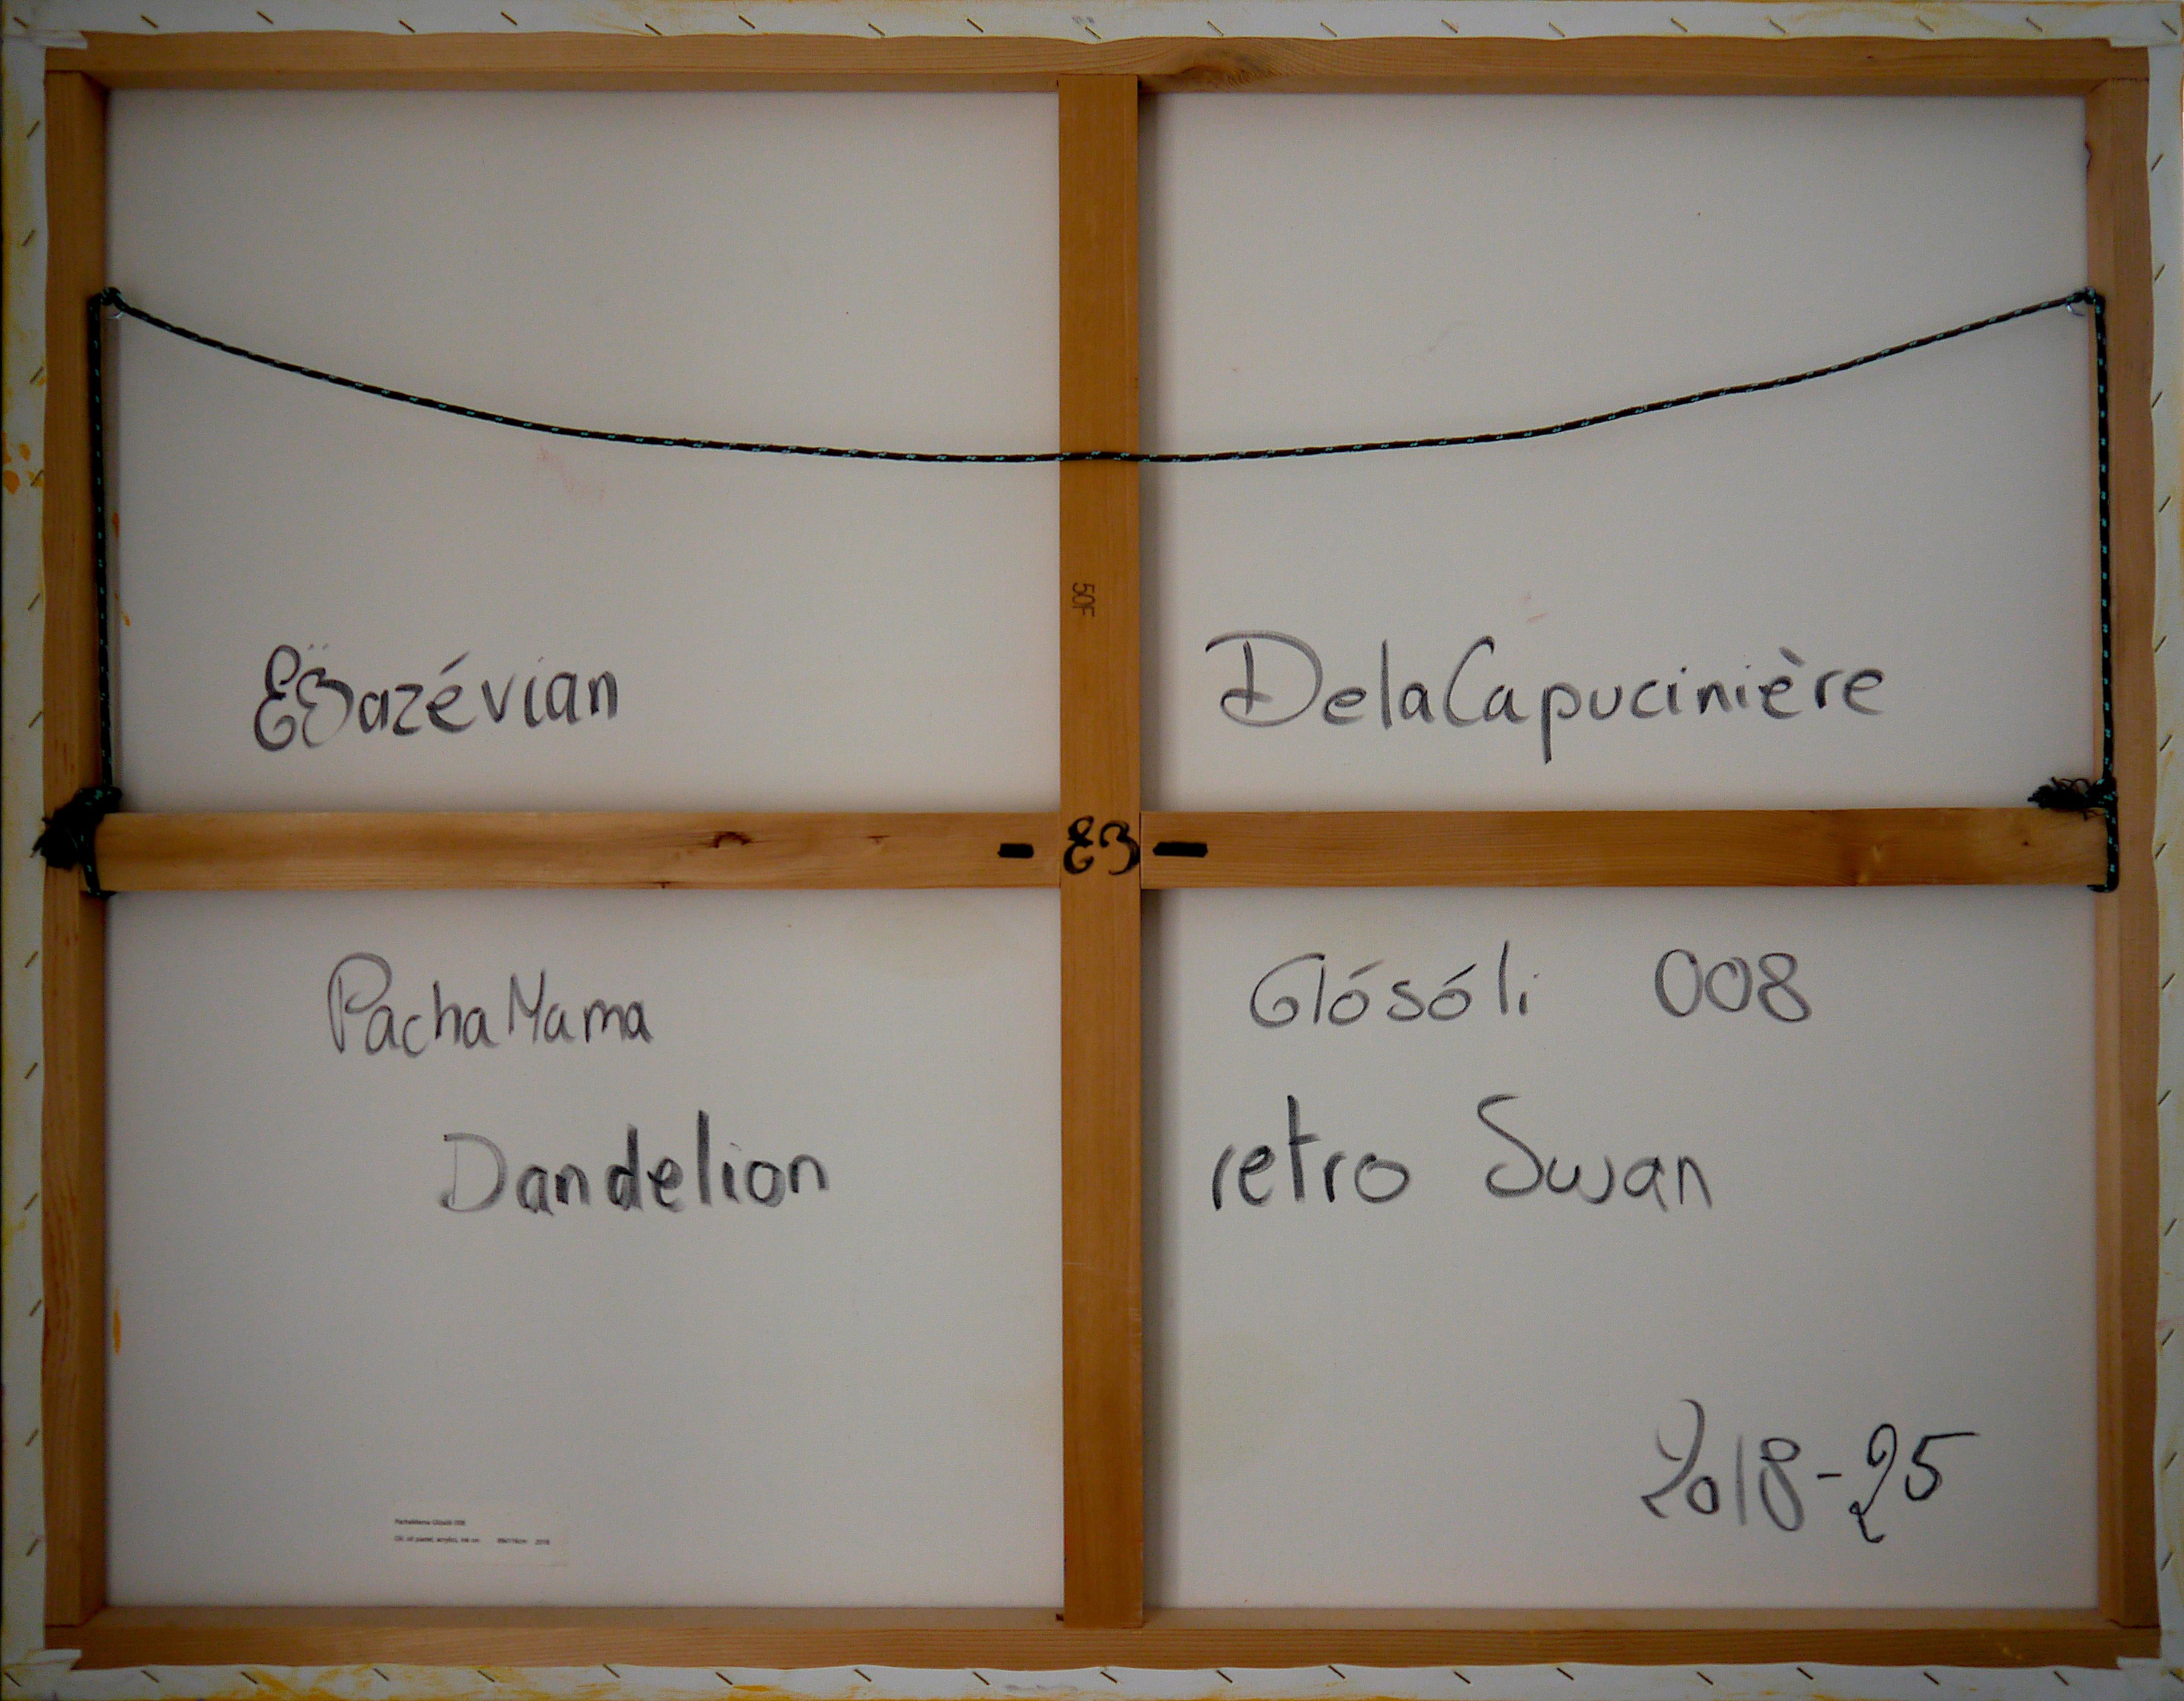 50F
EBazévian DelaCapucinière
- EB -
PachaMama Glósóli 008
Dandelion retro Swan
2018-25
PachaMama Glósóli 008
Oil, oil pastel, acrylics, ink on 89x116cm 2018